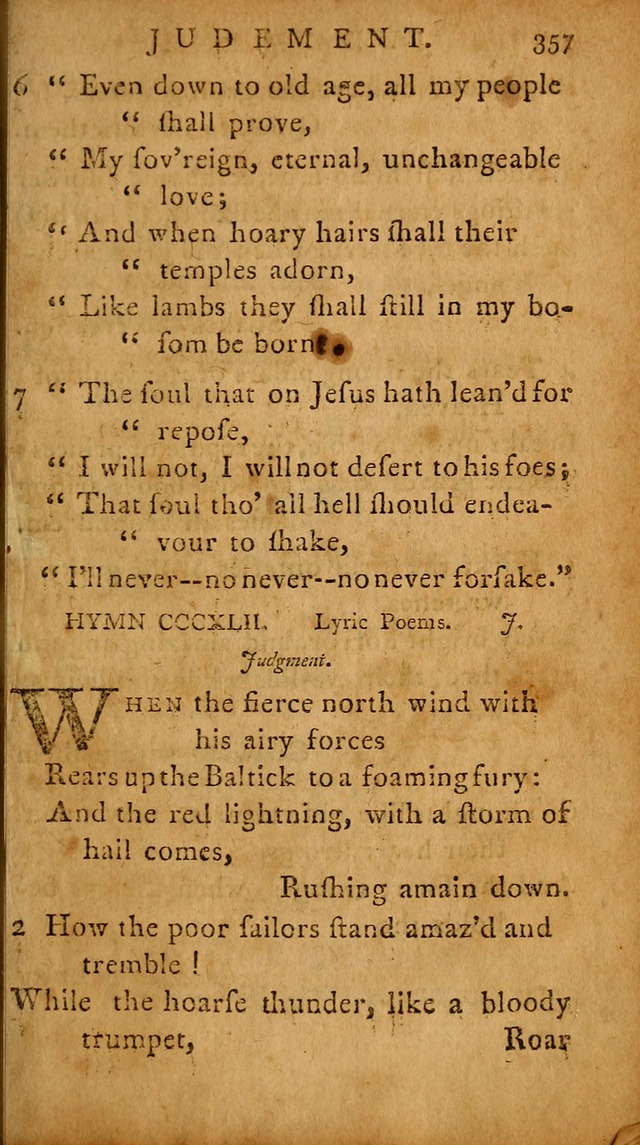 JUDEMENT. 357
6 “ Even down to old age, all my people
“ ſhall prove,
“ My ſov’reign, eternal, unchangeable
“ love;
“ And when hoary hairs ſhall their
“ temples adorn,
“ Like lambs they ſhall ſtill in my bo-
“ ſom be born.
7 “ The ſoul that on Jeſus hath lean’d for
“ repoſe,
“ I will not, I will not deſert to his foes;
“ That ſoul tho’ all hell ſhould endea-
“ vour to ſhake,
“ I’ll never--no never--no never forſake.”
HYMN CCCXLII. Lyric Poems. J.
Judgment.
WHEN the fierce north wind with
his airy forces
Rears up the Baltick to a foaming fury:
And the red lightning, with a ſtorm of
hail comes,
Ruſhing amain down.
2 How the poor ſailors ſtand amaz’d and
tremble !
While the hoarſe thunder, like a bloody
trumpet, Roar